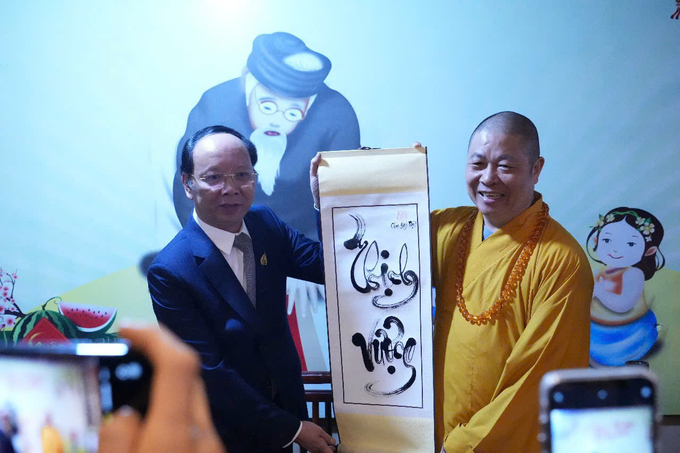 Thịnh
Vượng